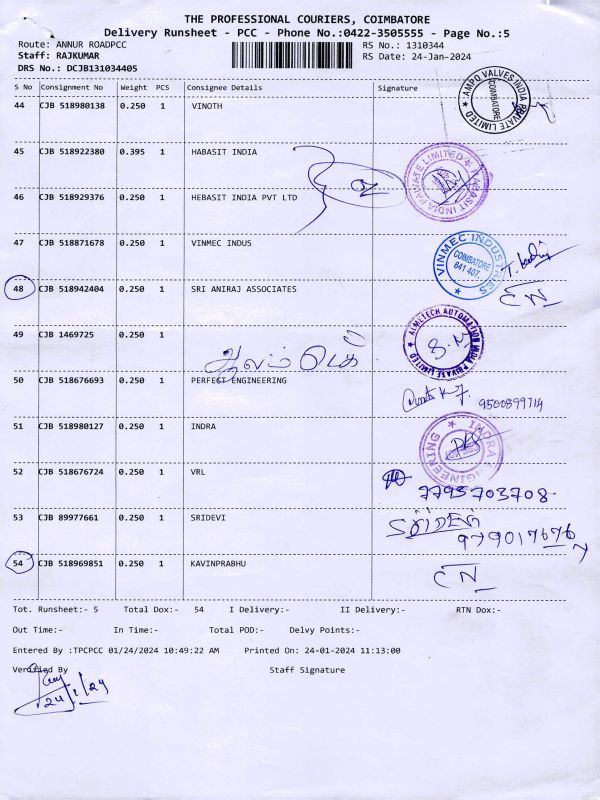 THE PROFESSIONAL COURIERS, COIMBATORE
Delivery Runsheet - PCC - Phone No.:0422-3505555 - Page No.:5
Route: ANNUR ROADPCC RS No.: 1310344
Staff: RAJKUMAR RS Date: 24-Jan-2024
DRS No.: DCJB131034405
S No Consignment No Weight PCS Consignee Details Signature
44 CJB 518980138 0.250 1 VINOTH
AMPO VALVES INDIA PRIVATE LIMITED
COIMBATORE
45 CJB 518922380 0.395 1 HABASIT INDIA
HABASIT INDIA PRIVATE LIMITED
46 CJB 518929376 0.250 1 HEBASIT INDIA PVT LTD
47 CJB 518871678 0.250 1 VINMEC INDUS
VINMEC INDUSTRIES
COIMBATORE
641 407.
48 CJB 518942404 0.250 1 SRI ANIRAJ ASSOCIATES
CN
49 CJB 1469725 0.250 1
ALMETECH AUTOMATION INDIA PRIVATE LIMITED
50 CJB 518676693 0.250 1 PERFECT ENGINEERING
9500899714
51 CJB 518980127 0.250 1 INDRA
INDRA ENGINEERING
52 CJB 518676724 0.250 1 VRL
7795703708
53 CJB 89977661 0.250 1 SRIDEVI
9790176767
54 CJB 518969851 0.250 1 KAVINPRABHU
CN
Tot. Runsheet:- 5 Total Dox:- 54 I Delivery:- II Delivery:- RTN Dox:-
Out Time:- In Time:- Total POD:- Delvy Points:-
Entered By :TPCPCC 01/24/2024 10:49:22 AM Printed On: 24-01-2024 11:13:00
Verified By Staff Signature
24/1/24